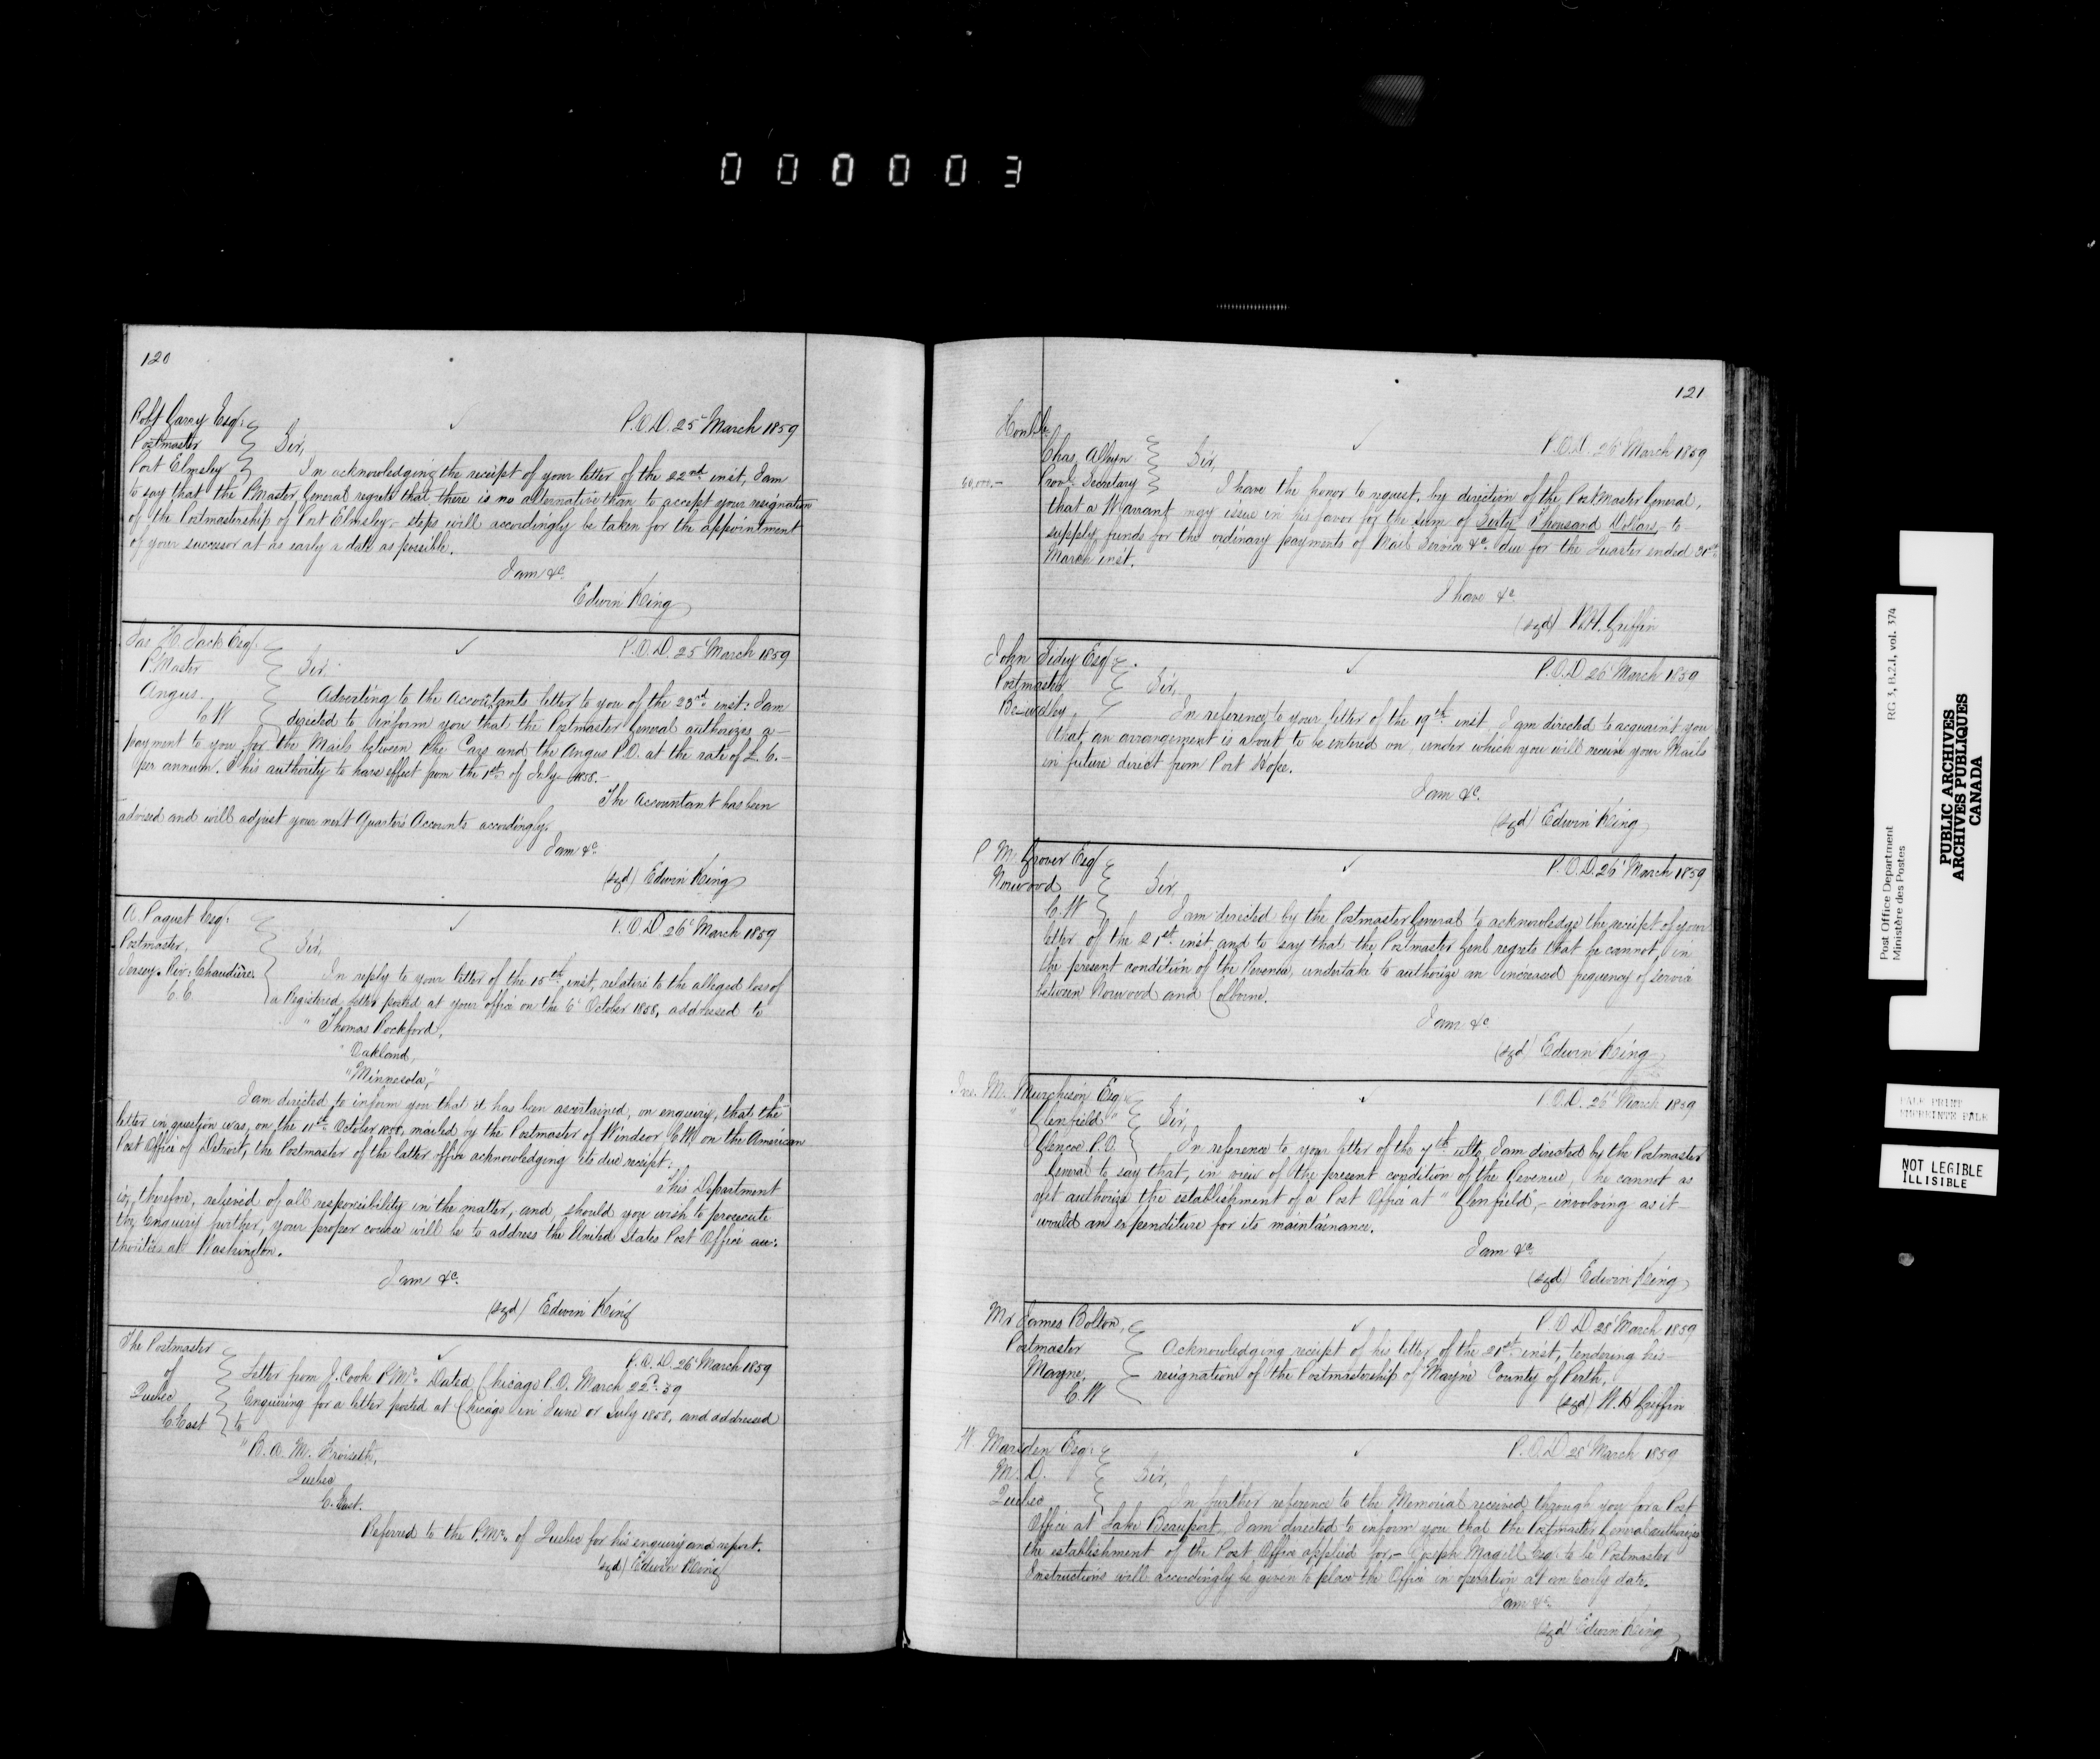 000003
120
Robt Garry Esqr.
P.O.D. 25 March 1859
Postmaster
Sir,
Port Elmsley
In acknowledging the receipt of your letter of the 22nd inst, I am
to say that the PMaster General regrets that there is no alternative than to accept your resignation
of the Postmastership of Port Elmsley – steps will accordingly be taken for the appointment
of your successor at as early a date as possible.
I am &c.
Edwin King
Jas H. Jack Esqr.
P.O.D. 25 March 1859
P.Master
Sir.
Angus.
C.W
Adverting to the Accountants letter to you of the 23rd inst: I am
directed to inform you that the Postmaster General authorizes a –
payment to you for the Mails between the Cars and the Angus P.O. at the rate of £. 6. –
per annum. This authority to have effect from the 1st of July 1858. –
The Accountant has been
advised and will adjust your next Quarters Accounts accordingly.
I am &c.
(sgd) Edwin King
A. Paquet Esqr.
P.O.D 26 March 1859
Postmaster,
Sir,
Jersey. Riv: Chaudière
C.E.
In reply to your letter of the 15th inst, relative to the alleged loss of
a Registered letter posted at your office on the 6 October 1858, addressed to
" Thomas Rockford,
" Oakland,
"Minnesota,"
I am directed to inform you that it has been ascertained, on enquiry, that the
letter in question was, on the 11th October 1858, mailed by the Postmaster of Windsor C.W. on the American
Post Office of Detroit, the Postmaster of the latter office acknowledging its due receipt.
This Department
is, therefore, relieved of all responsibility in the matter, and should you wish to prosecute
the enquiry further, your proper course will be to address the United States Post Office au-
thorities at Washington.
I am &c.
(sgd) Edwin King
The Postmaster
P.O.D. 26 March 1859
of
Quebec
C. East
Letter from J. Cook P.Mr. Dated Chicago P.O. March 22d. 59
Enquiring for a letter posted at Chicago in June or July 1858, and addressed
to
" B. A. M. Froiseth,
Quebec
C. East.
Referred to the P.Mr. of Quebec for his enquiry and report.
(sgd) Edwin King
121
Honble
Chas, Alleyn
P.O.D. 26 March 1859
Sir,
60,000.–
Provl. Secretary
I have the honor to request, by direction of the PostMaster General,
that a Warrant may issue in his favor for the sum of Sixty Thousand Dollars, to
supply funds for the ordinary payments of Mail Service &c. due for the Quarter ended 31st
March inst.
I have &c.
(sgd) W.H. Griffin
John Sidey Esqr.
P.O.D 26 March 1859
Postmaster
Sir,
Bewdley
In reference to your letter of the 19th inst I am directed to acquaint you
that, an arrangement is about to be entered on, under which you will receive your Mails
in future direct from Port Hope.
I am &c.
(sgd) Edwin King
P. M. Grover Esqr
P.O.D. 26 March 1859
Norwood
Sir,
C.W
I am directed by the Postmaster General to acknowledge the receipt of your
letter of the 21st inst and to say that the Postmaster Genl regrets that he cannot, in
the present condition of the Revenue, undertake to authorize an increased frequency of service
between Norwood and Colborne.
I am &c
(sgd) Edwin King
Jno. M. Murchison Esqr.
P.O.D. 26 March 1859
"Glenfield"
Sir,
Glencoe P.O.
In reference to your letter of the 7th ulto, I am directed by the Postmaster
General to say that, in view of the present condition of the Revenue, he cannot as
yet authorize the establishment of a Post Office at "Glenfield", – involving as it –
would an expenditure for its maintainance.
I am &c.
(sgd) Edwin King
Mr James Bolton,
P.O.D. 28 March 1859
Postmaster
Mayne,
C.W
Acknowledging receipt of his letter of the 21st inst, tendering his
resignation of the Postmastership of Mayne County of Perth.
(sgd) W. H Griffin
W. Marsden Esqr.
P.O.D 28 March 1859
M.D.
Sir,
Quebec
In further reference to the Memorial received through you for a Post
Office at Lake Beauport, I am directed to inform you that the Postmaster General authorizes
the establishment of the Post Office applied for, – Joseph Magill Esqr. to be Postmaster
Instructions will accordingly be given to place the Office in operation at an early date.
I am &c.
(sgd) Edwin King
Post Office Department
Ministère des Postes
RG 3, B.2.1, vol. 374
PUBLIC ARCHIVES
ARCHIVES PUBLIQUES
CANADA
PALE PRINT
EMPREINTE PALE
NOT LEGIBLE
ILLISIBLE